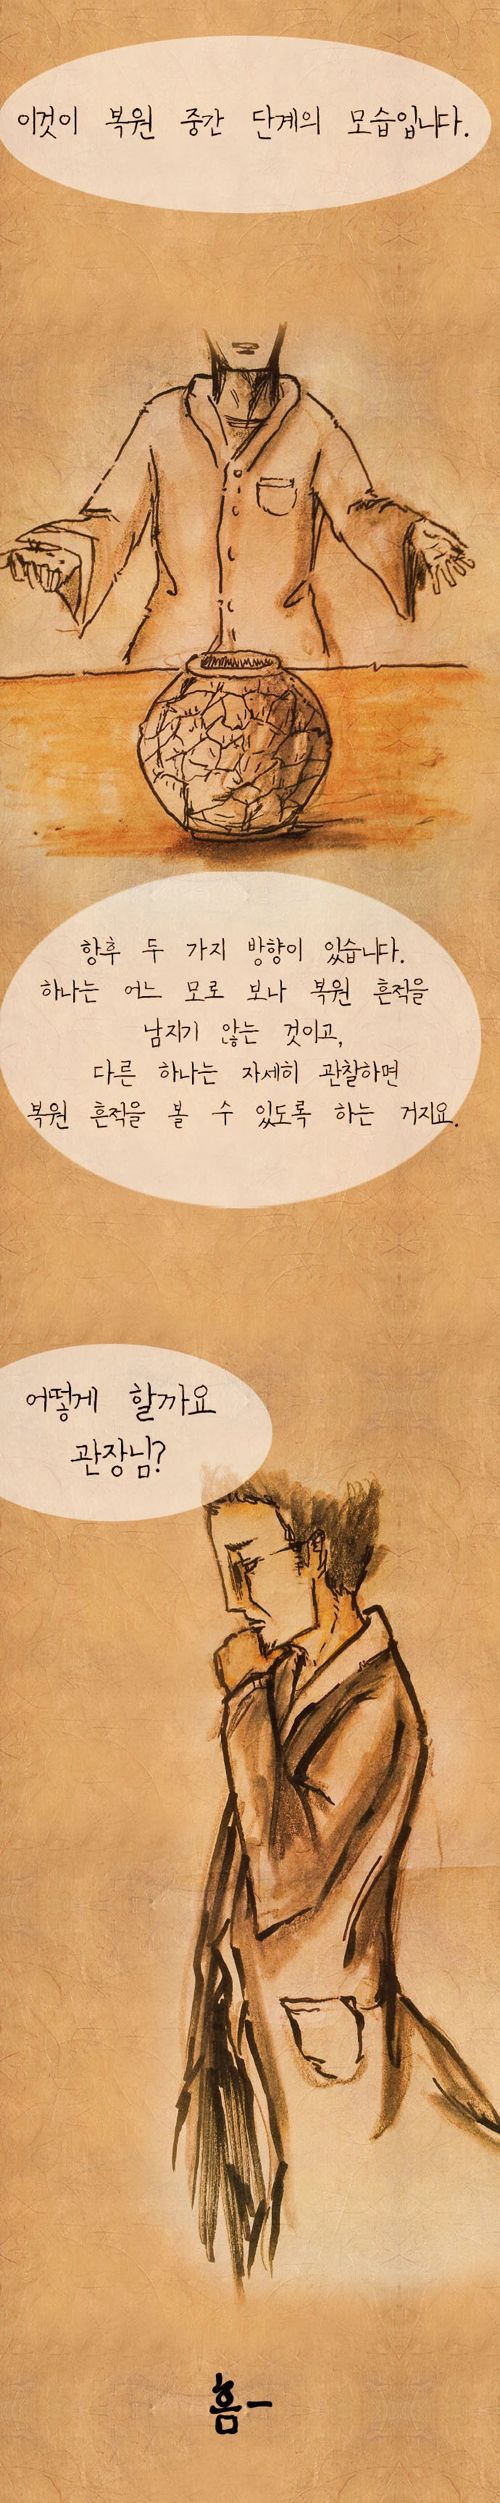 이것이 복원 중간 단계의 모습입니다.
향후 두 가지 방향이 있습니다.
하나는 어느 모로 보나 복원 흔적을
남지기 않는 것이고,
다른 하나는 자세히 관찰하면
복원 흔적을 볼 수 있도록 하는 거지요.
어떻게 할까요
관장님?
흠ー